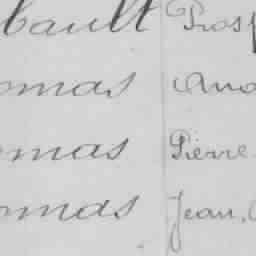 bault Prosp
omas And
omas Pierre
omas Jean,